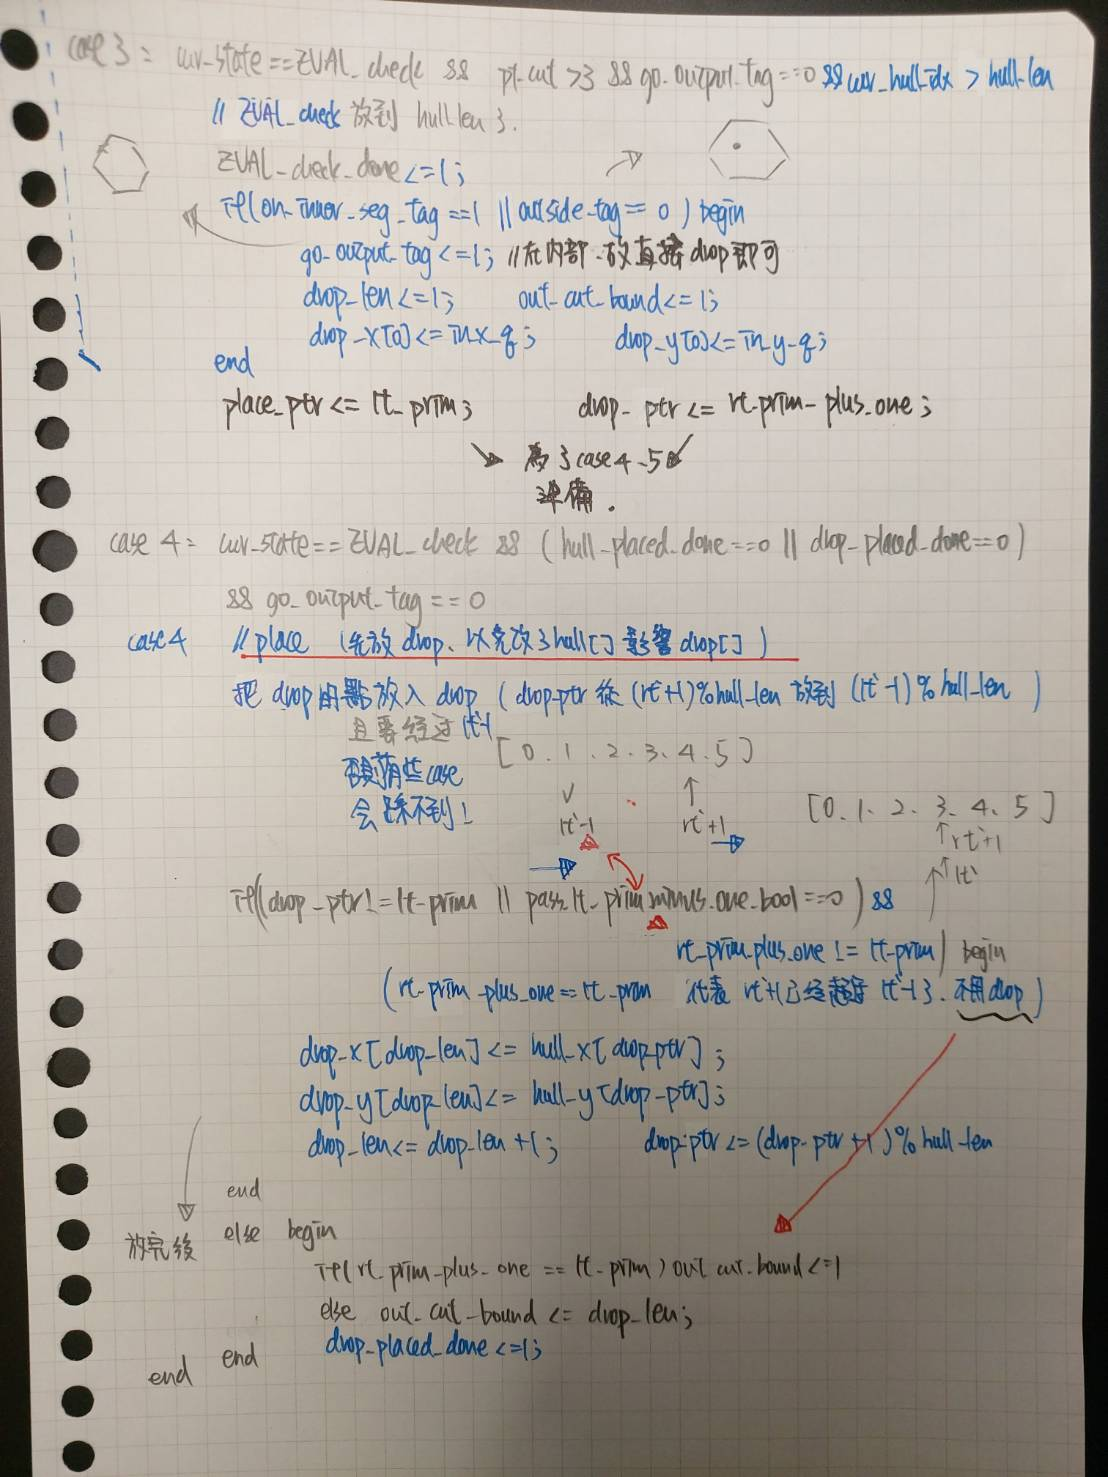 case 3: cur_state==EVAL_check && pt_cnt >3 && go_output_tag==0 && cur_hull_idx > hull_len
// EVAL_check 放到 hull len 了.
EVAL_check_done<=1;
if(on_inner_seg_tag==1 || outside_tag== 0) begin
go_output_tag<=1; //在內部、放直接drop即可
drop_len<=1; out_cnt_bound<=1;
drop_x[0]<=in_x_q; drop_y[0]<=in_y_q;
end
place_ptr<=lt_prim; drop_ptr<= rt_prim_plus_one;
為了case4、5
準備.
case 4: cur_state==EVAL_check && (hull_placed_done==0 || drop_placed_done==0)
&& go_output_tag==0
case4 //place (先放drop、以免改了hull[]影響drop[])
把drop的點放入drop (drop_ptr 從 (rt'+1)%hull_len 放到 (lt'-1)%hull_len )
且要經過lt'-1
否則有些case
會踩不到!
[0、1、2、3、4、5]
lt'-1 rt'+1
[0、1、2、3、4、5]
rt'+1
lt'
if((drop_ptr!=lt_prim || pass_lt_prim_minus_one_bool==0) &&
rt_prim_plus_one != lt_prim) begin
(rt_prim_plus_one==lt_prim 代表 rt'+1已經超過 lt'-1了、不用drop)
drop_x[drop_len]<= hull_x[drop_ptr];
drop_y[drop_len]<= hull_y[drop_ptr];
drop_len<= drop_len+1; drop_ptr<=(drop_ptr+1)%hull_len
end
放完後 else begin
if(rt_prim_plus_one == lt_prim) out_cnt_bound<=1
else out_cnt_bound <= drop_len;
drop_placed_done<=1;
end
end